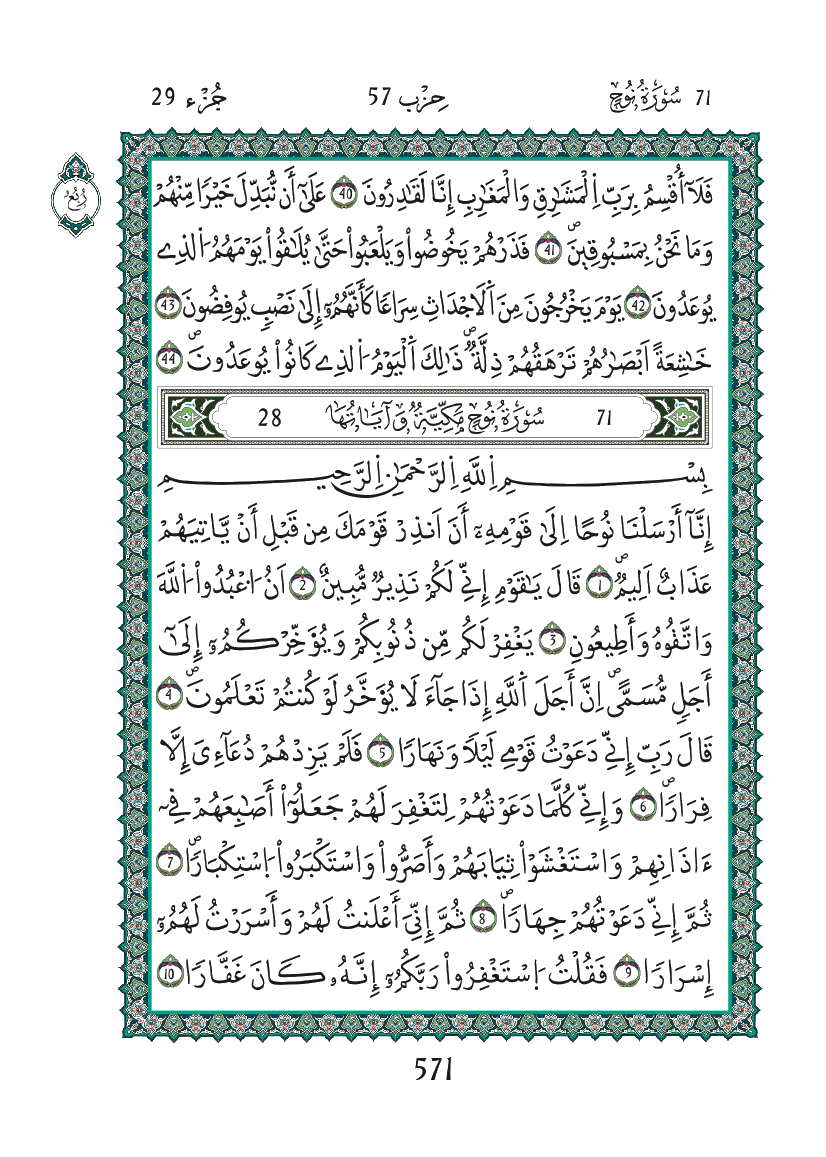 71 سُورَةُ نُوحٍ حِزْب 57 جُزْء 29
رُبُع
فَلَآ أُقْسِمُ بِرَبِّ اِ۬لْمَشَٰرِقِ وَالْمَغَٰرِبِ إِنَّا لَقَٰدِرُونَ 40 عَلَىٰٓ أَن نُّبَدِّلَ خَيْرًا مِّنْهُمْ
وَمَا نَحْنُ بِمَسْبُوقِينَۖ 41 فَذَرْهُمْ يَخُوضُواْ وَيَلْعَبُواْ حَتَّىٰ يُلَٰقُواْ يَوْمَهُمُ اُ۬لذِے
يُوعَدُونَ 42 يَوْمَ يَخْرُجُونَ مِنَ اَ۬لَاجْدَاثِ سِرَاعًا كَأَنَّهُمُۥٓ إِلَىٰ نَصْبٍ يُوفِضُونَ 43
خَٰشِعَةً اَبْصَٰرُهُمْ تَرْهَقُهُمْ ذِلَّةٌۖ ذَٰلِكَ اَ۬لْيَوْمُ اُ۬لذِے كَانُواْ يُوعَدُونَۖ 44
71 سُورَةُ نُوحٍ مَكِّيَّةٌ وَءَايَاتُهَا 28
بِسْمِ اِ۬للَّهِ اِ۬لرَّحْمَٰنِ اِ۬لرَّحِيمِ
إِنَّآ أَرْسَلْنَا نُوحًا اِلَىٰ قَوْمِهِۦٓ أَنَ اَنذِرْ قَوْمَكَ مِن قَبْلِ أَنْ يَّاتِيَهُمْ
عَذَابٌ اَلِيمٌۖ 1 قَالَ يَٰقَوْمِ إِنِّے لَكُمْ نَذِيرٌ مُّبِينٌ 2 اَنُ اُ۟عْبُدُواْ اُ۬للَّهَ
وَاتَّقُوهُ وَأَطِيعُونِ 3 يَغْفِرْ لَكُم مِّن ذُنُوبِكُمْ وَيُؤَخِّرْكُمُۥٓ إِلَىٰٓ
أَجَلٍ مُّسَمًّىۖ إِنَّ أَجَلَ اَ۬للَّهِ إِذَا جَآءَ لَا يُؤَخَّرُ لَوْ كُنتُمْ تَعْلَمُونَۖ 4
قَالَ رَبِّ إِنِّے دَعَوْتُ قَوْمِے لَيْلًا وَنَهَارًا 5 فَلَمْ يَزِدْهُمْ دُعَآءِىَ إِلَّا
فِرَارًاۖ 6 وَإِنِّے كُلَّمَا دَعَوْتُهُمْ لِتَغْفِرَ لَهُمْ جَعَلُوٓاْ أَصَٰبِعَهُمْ فِےٓ
ءَاذَانِهِمْ وَاسْتَغْشَوْاْ ثِيَابَهُمْ وَأَصَرُّواْ وَاسْتَكْبَرُواْ اُ۪سْتِكْبَارًاۖ 7
ثُمَّ إِنِّے دَعَوْتُهُمْ جِهَارًاۖ 8 ثُمَّ إِنِّىَ أَعْلَنتُ لَهُمْ وَأَسْرَرْتُ لَهُمُۥٓ
إِسْرَارًا 9 فَقُلْتُ اُ۪سْتَغْفِرُواْ رَبَّكُمُۥٓ إِنَّهُۥ كَانَ غَفَّارًا 10
571